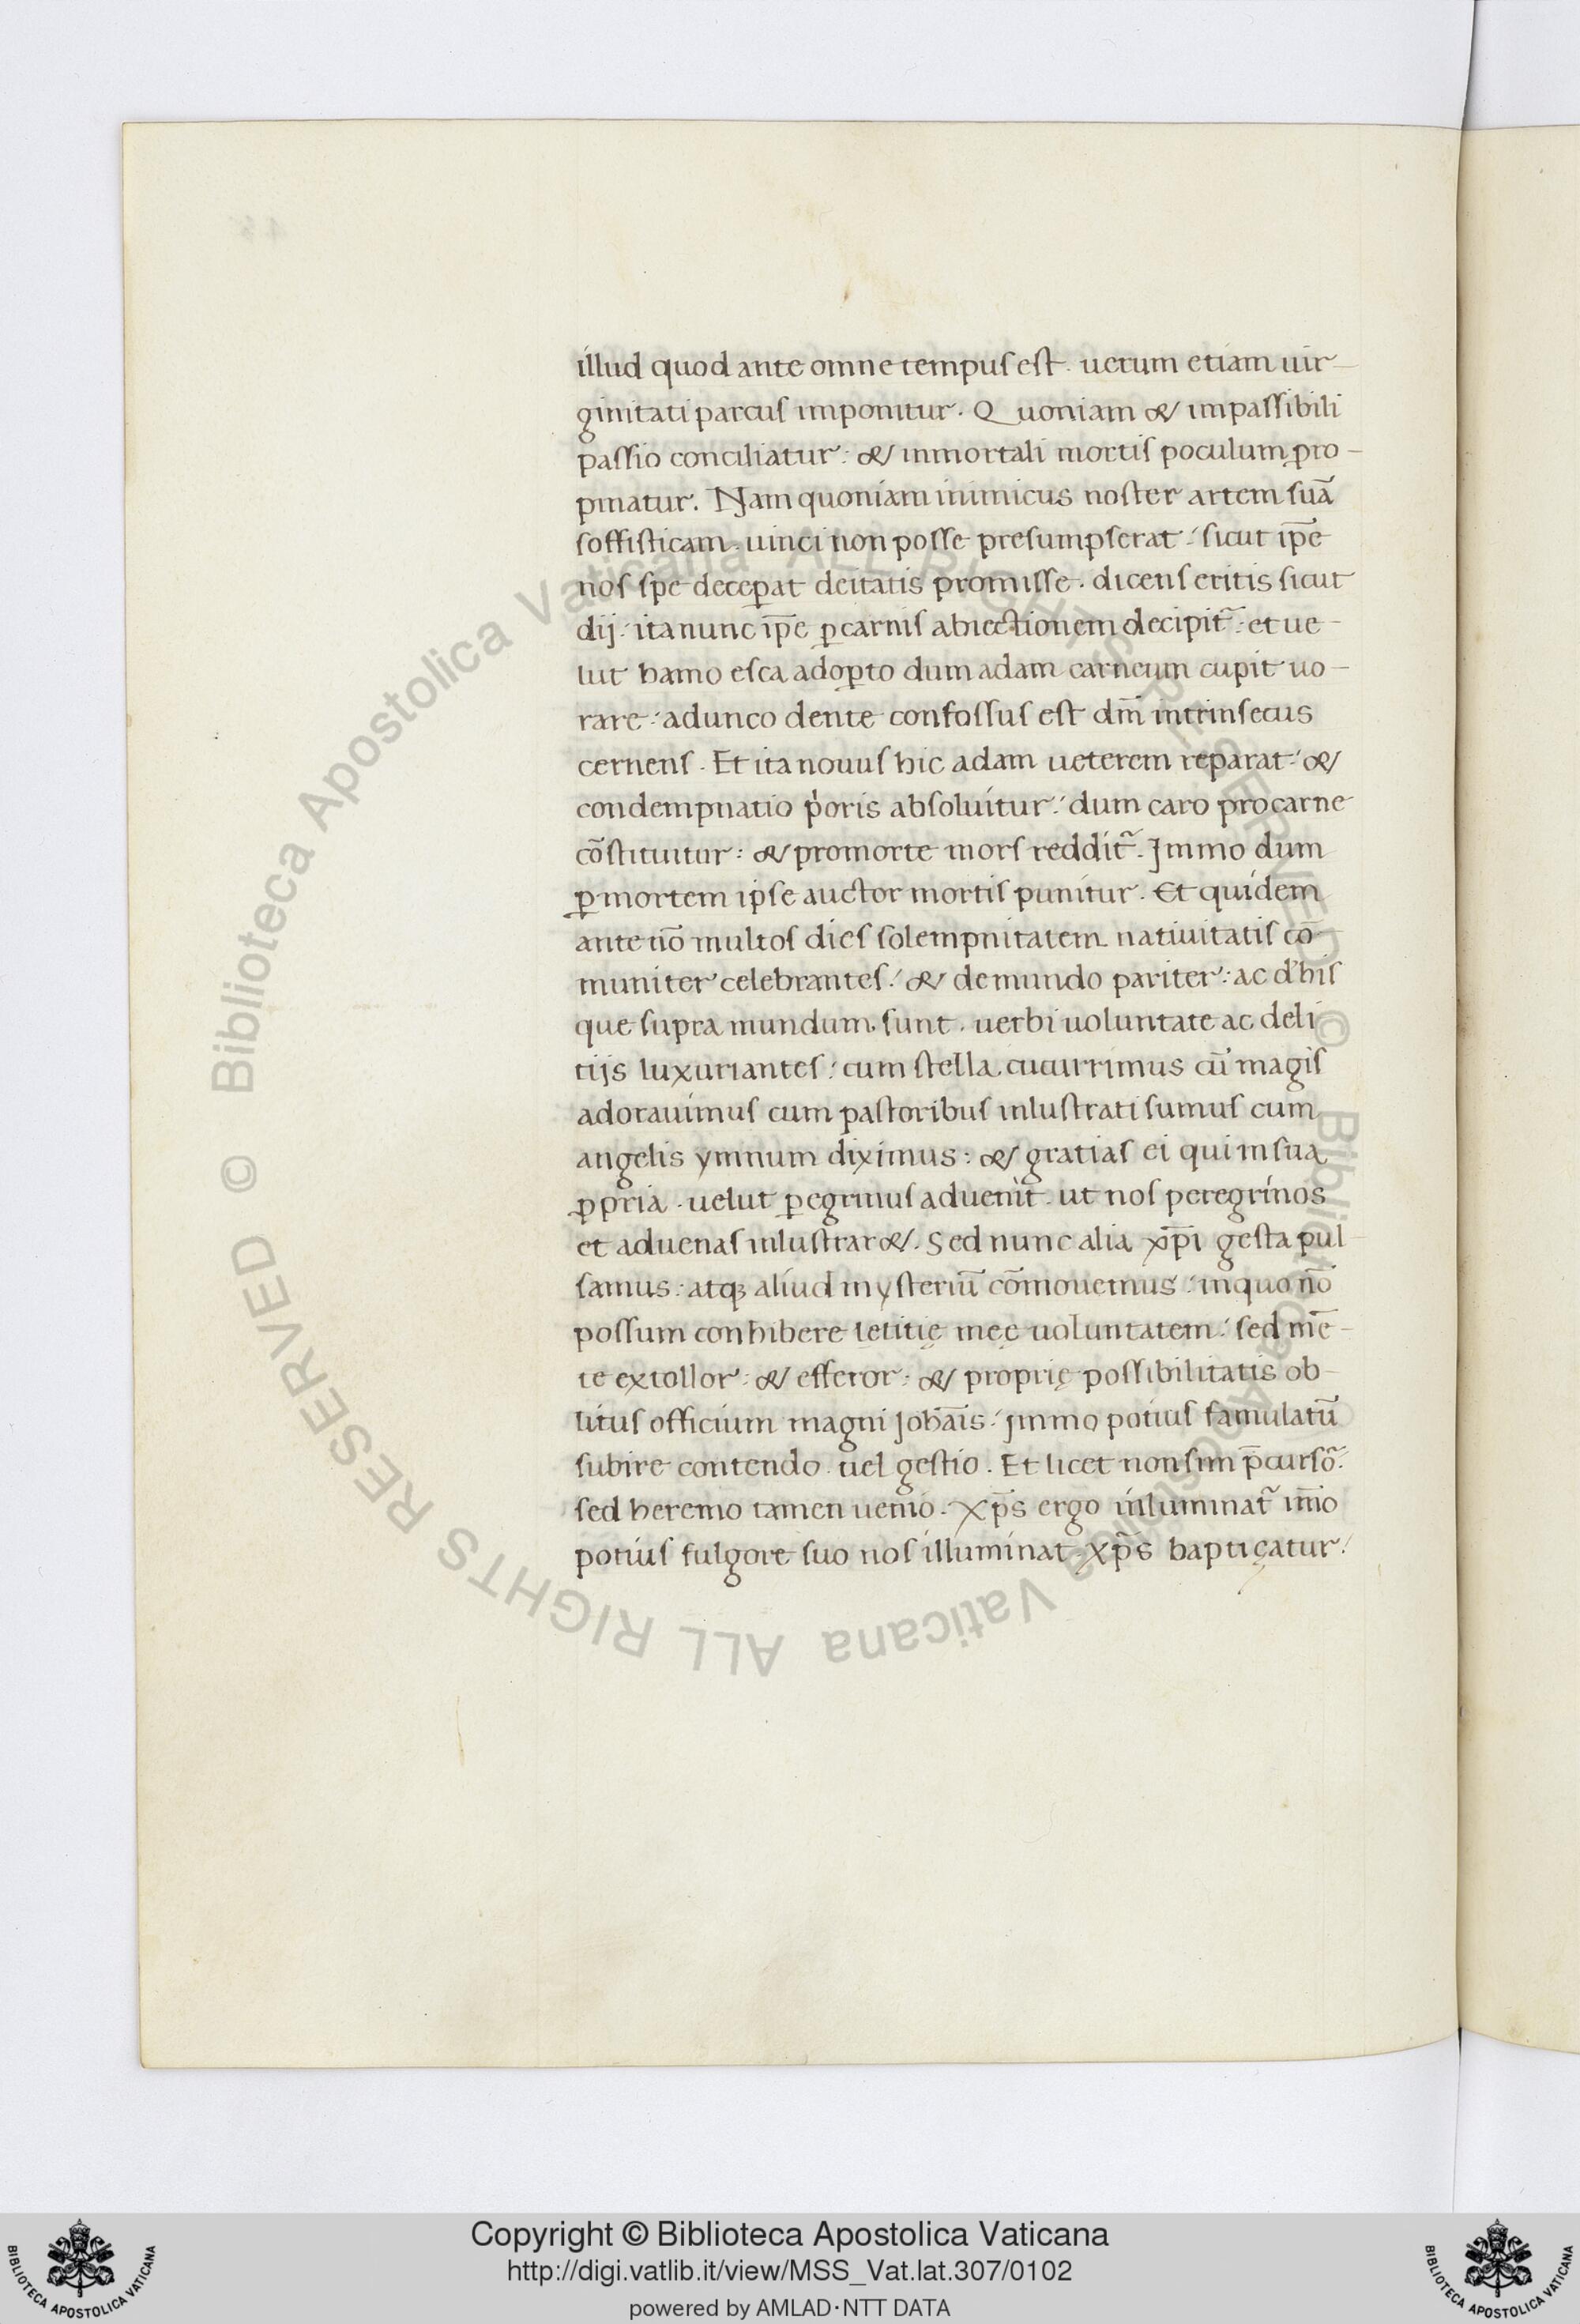 illud quod ante omne tempus est. uerum etiam uir-
ginitati partus imponitur. Quoniam & impassibili
passio conciliatur: & inmortali mortis poculum pro-
pinatur. Nam quoniam inimicus noster artem suā
soffisticam. uinci non posse presumpserat: sicut ip̄e
nos spe deceꝑat deitatis promisse. dicens eritis sicut
dij: ita nunc ip̄e ꝑ carnis abiectionem decipit᷑: et ue-
lut hamo esca adoꝑto dum adam carneum cupit uo-
rare: adunco dente confossus est dm̄ intrinsecus
cernens. Et ita nouus hic adam ueterem reparat: &
condempnatio p̍oris absoluitur: dum caro pro carne
cōstituitur: & pro morte mors reddit᷑. Jmmo dum
ꝑ mortem ipse auctor mortis punitur. Et quidem
ante nō multos dies solempnitatem natiuitatis cō-
muniter celebrantes: & de mundo pariter: ac d̕ his
que supra mundum sunt. uerbi uoluntate ac deli
tijs luxuriantes: cum stella cucurrimus cū magis
adorauimus cum pastoribus inlustrati sumus cum
angelis ymnum diximus: & gratias ei qui in sua
ꝓpria. uelut ꝑegrinus aduenit. ut nos peregrinos
et aduenas inlustrar&. Sed nunc alia xp̄i gesta pul-
samus: atqꝫ aliud mysteriū cōmouemus: in quo nō
possum conhibere letitię meę uoluntatem: sed mē-
te extollor: & efferor: & proprię possibilitatis ob-
litus officium magni Joha̅is: jmmo potius famulatū
subire contendo uel gestio. Et licet non sim p̄cursō:
sed heremo tamen uenio. Xp̄s ergo inluminat᷑ im̄o
potius fulgore suo nos illuminat. Xp̄s baptiçatur:
Copyright © Biblioteca Apostolica Vaticana
http://digi.vatlib.it/view/MSS_Vat.lat.307/0102
powered by AMLAD·NTT DATA
© Biblioteca Apostolica Vaticana ALL RIGHTS RESERVED
© Biblioteca Apostolica Vaticana ALL RIGHTS RESERVED
BIBLIOTECA APOSTOLICA VATICANA
BIBLIOTECA APOSTOLICA VATICANA